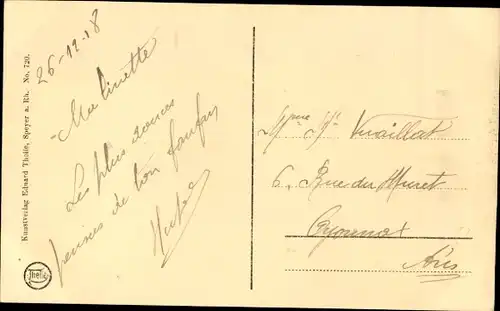 Kunstverlag Eduard Thome, Speyer a. Rh. No. 720.
26-12-18
Ma Linette
Les plus douces
pensées de ton fanfan
Mme Vuaillat
6, Rue du Muret
Oyonnax
Ain